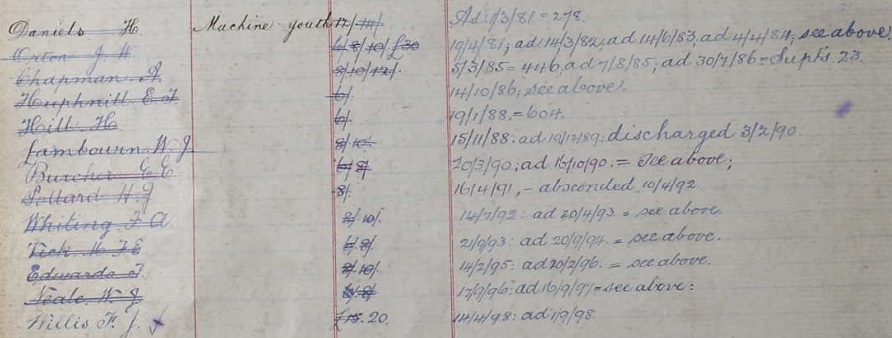 Daniels H Machine-youth 12/. 14/. Ad: 1/3/81 = 278.
Orton J. W 6/ 8/ 10/ £30 19/4/81; ad 14/3/82, ad 14/6/83, ad 4/4/84, see above.
Chapman A 8/10/12/. 5/3/85 = 446, ad 7/8/85, ad 30/7/86 = Supt's. 23.
Huphnill E J 6/. 14/10/86; see above.
Hill H 6/. 19/1/88. = 604.
Lambourn W J 8/. 10/. 15/11/88: ad 19/12/89: discharged 3/2/90.
Burcher E E 6/. 8/. 20/3/90; ad 16/10/90. = see above;
Pollard H. J 8/. 16/4/91, - absconded 10/4/92
Whiting F. A. 8/. 10/. 14/7/92: ad 20/4/93 = see above.
Vick M F E 6/. 8/. 21/9/93: ad 20/9/94. = see above.
Edwards J. 8/. 10/. 14/2/95: ad 20/2/96. = see above.
Neale W. J 6/. 8/. 17/9/96: ad 16/9/97 = see above:
Willis F. J. £15. 20. 14/4/98: ad 1/9/98.